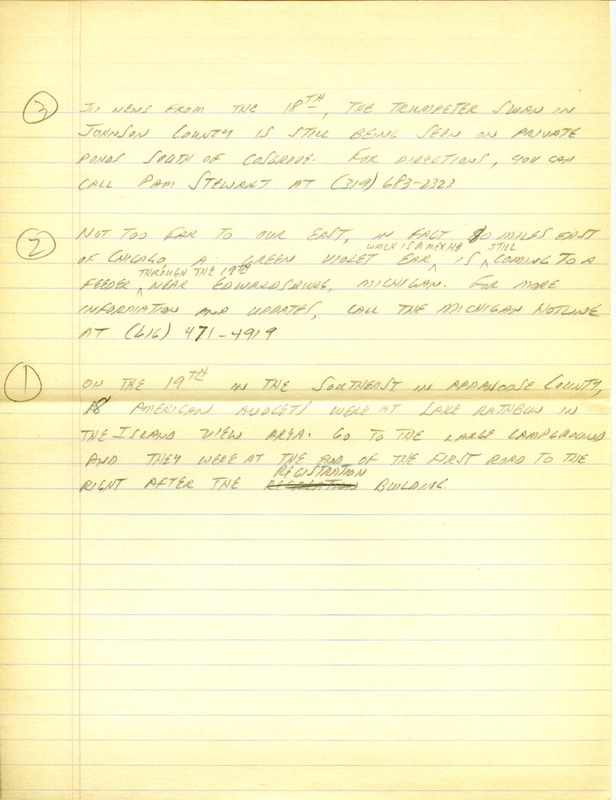 3 IN NEWS FROM THE 18TH, THE TRUMPETER SWAN IN
JOHNSON COUNTY IS STILL BEING SEEN ON PRIVATE
PONDS SOUTH OF COSGROVE. FOR DIRECTIONS, YOU CAN
CALL PAM STEWART AT (319) 683-2323
2 NOT TOO FAR TO OUR EAST, IN FACT 80 MILES EAST
WHICH IS A MEXING STILL
OF CHICAGO, A GREEN VIOLET EAR IS COMING TO A
THROUGH THE 19TH
FEEDER NEAR EDWARDSBURG, MICHIGAN. FOR MORE
INFORMATION AND UPDATES, CALL THE MICHIGAN HOTLINE
AT (616) 471-4919
1 ON THE 19TH IN THE SOUTHEAST IN APPANOOSE COUNTY,
18 AMERICAN AVOCETS WERE AT LAKE RATHBUN IN
THE ISLAND VIEW AREA. GO TO THE LARGE CAMPGROUND
AND THEY WERE AT THE END OF THE FIRST ROAD TO THE
REGISTRATION
RIGHT AFTER THE RECREATION BUILDING